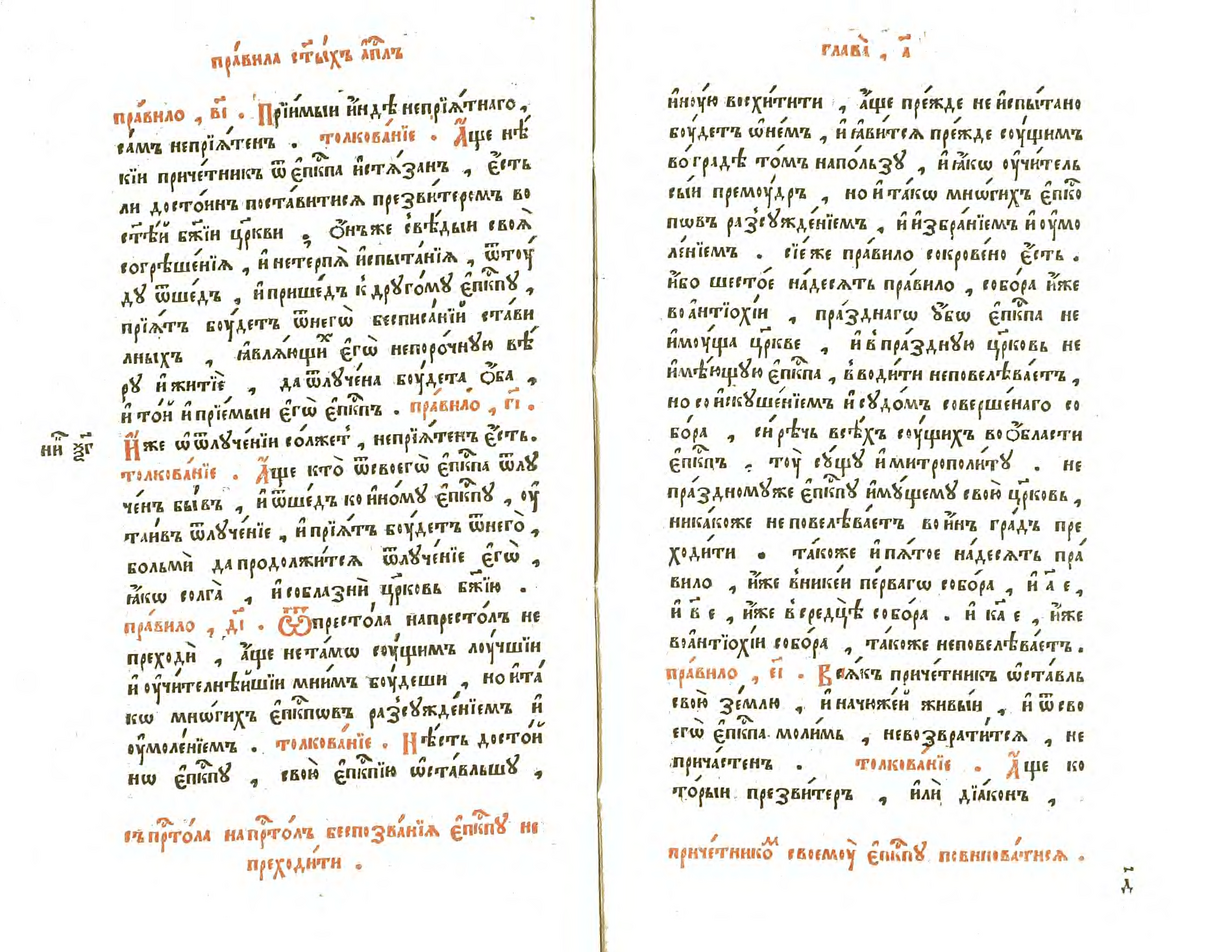 пра́вила ст҃ы́хъ а҆пⷭ҇лъ
пра́вило , в҃і . Прїи́мыи и҆нд̾ѣ непрїѧ́тнаго ,
са́мъ непрїѧ́тенъ . толкова́нїе . А҆́ще нѣ́
кїи приче́тникъ ѿ є҆пⷭ҇кпа и҆стѧ́занъ , є҆́сть
ли досто́инъ поста́витисѧ презви́теромъ во
ст҃ѣ́й бж҃їи цр҃кви . О҆́нъже свѣ́дыи своѧ̀
согрѣше́нїѧ , и҆нетерпѧ̀ и҆спыта́нїѧ , ѿтоу́
дꙋ ѿше́дъ , и҆прише́дъ к̾ дрꙋго́мꙋ є҆пⷭ҇кпꙋ ,
прїѧ́тъ боу́детъ ѿнегѡ̀ беспи́санїй ста́ви
лныхъ , ꙗ҆влѧ́ющиⷯ є҆гѡ̀ непоро́чнꙋю вѣ́
рꙋ и҆житїѐ , да ѿлꙋче́на боу́дета о҆́ба ,
и҆ то́й и҆ прїе́мыи є҆гѡ̀ є҆пⷭ҇кпъ . пра́вило , г҃і .
И҆́же ѡ҆ ѿлꙋче́нїи со́лжетъ , непрїѧ́тенъ є҆́сть .
ни́ѝ ѯ҃г
толкова́нїе . А҆́ще кто̀ ѿсвоегѡ̀ є҆пⷭ҇кпа ѿлꙋ
че́нъ бы́въ , и҆ѿше́дъ ко и҆но́мꙋ є҆пⷭ҇кпꙋ , оу҆
таи́въ ѿлꙋче́нїе , и҆прїѧ́тъ боу́детъ ѿнего̀ ,
больмѝ да продолжи́тсѧ ѿлꙋче́нїе є҆гѡ̀ ,
ꙗ҆́кѡ солга̀ , и҆ соблазнѝ цр҃ковь бж҃їю .
пра́вило , д҃і . Ѿпресто́ла напресто́лъ не
преходѝ , а҆́ще нета́мѡ соу́щимъ лоу́чшїи
и҆ оу҆чи́телнѣйшїи мни́мъ боу́деши , но и҆та́
кѡ мно́гихъ є҆пⷭ҇кпѡвъ разсꙋжде́нїемъ и҆
оу҆моле́нїемъ . толкова́нїе . Нѣ́сть досто́й
нѡ є҆пⷭ҇кпꙋ , свою̀ є҆пⷭ҇кпїю ѡ҆ста́вльшꙋ ,
съ прⷭ҇то́ла на прⷭ҇то́лъ беспозва́нїѧ є҆пⷭ҇кпꙋ не
преходи́ти .
глава̀ , а҃
и҆ноу́ю восхи́тити , а҆́ще пре́жде не и҆спы́тано
боу́детъ ѡ҆не́мъ , и҆ ꙗ҆ви́тсѧ пре́жде соу́щимъ
во гра́дѣ то́мъ напо́льзꙋ , и҆ ꙗ҆́кѡ оу҆чи́тель
сы́и премоу́дръ , но и҆ та́кѡ мнѡ́гихъ є҆пⷭ҇ко
пѡвъ разсꙋжде́нїемъ , и҆ и҆збра́нїемъ и҆ оу҆мо
ле́нїемъ . сїе́же пра́вило сокрове́но є҆́сть .
и҆́бо шесто́е на́десѧть пра́вило , собо́ра и҆́же
во а҆нтїохі́и , пра́зднагѡ ᲂу҆́бѡ є҆пⷭ҇кпа не
и҆моу́ща цр҃кве , и҆ в̾ пра́зднꙋю цр҃ковь не
и҆мѣ́ющꙋю є҆пⷭ҇кпа , в̾води́ти неповелѣва́етъ ,
но со и҆скꙋше́нїемъ и҆ сꙋдо́мъ соверше́наго со
бо́ра , си́рѣчь всѣ́хъ соу́щихъ во о҆́бласти
є҆пⷭ҇кпъ . тоу̀ сꙋ́щꙋ и҆ митрополи́тꙋ . не
пра́здномꙋже є҆пⷭ҇кпꙋ и҆мꙋ́щемꙋ свою̀ цр҃ковь ,
ника́коже не повелѣва́етъ во и҆́нъ гра́дъ пре
ходи́ти . та́коже и҆ пѧ́тое на́десѧть пра́
вило , и҆́же в̾нике́и пе́рвагѡ собо́ра , и҆ а҃ е ,
и҆ в҃ е , и҆́же в̾ середцѣ̀ собо́ра . и҆ ка҃ е , и҆́же
во а҆нтїохі́и собо́ра , та́коже неповелѣва́етъ .
пра́вило , є҃і . Всѧ́къ приче́тникъ ѡ҆ста́вль
свою̀ зе́млю , и҆ начюже́й живы́и , и҆ ѿ сво
егѡ̀ є҆пⷭ҇кпа моли́мь , невозврати́тсѧ , не
прича́стенъ . толкова́нїе . А҆́ще ко
то́рыи презви́теръ , и҆лѝ дїа́конъ ,
приче́тникоⷨ своемоу̀ є҆пⷭ҇кпꙋ повинова́тисѧ .
д҃